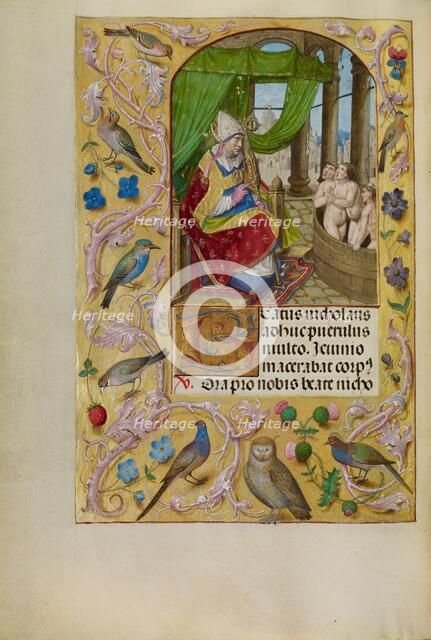 Beatus nicholaus
adhuc puerulus
multo. Ieiunio
macerabat corp9
V. Ora pro nobis beate nicho
Heritage
Heritage
Heritage
Heritage
Heritage
Heritage